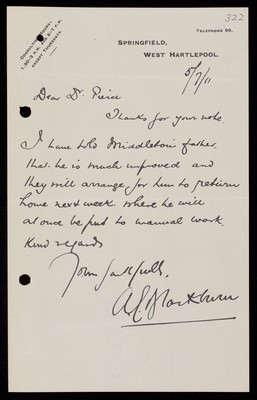 322
CONSULTING HOURS:
1.30-3 P.M. AND 6-7 P.M.
EXCEPT THURSDAYS.
TELEPHONE 99.
SPRINGFIELD,
WEST HARTLEPOOL.
5/7/11
Dear Dr. Pierce
Thanks for your note.
I have told Middleton's father
that he is much improved and
they will arrange for him to return
home next week where he will
at once be put to manual work.
Kind regards
Yours faithfully,
Blackburn